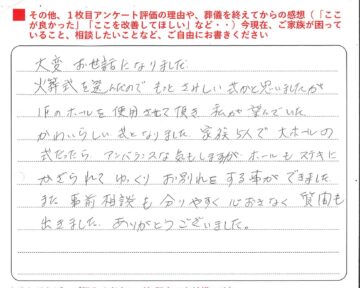 その他、1枚目アンケート評価の理由や、葬儀を終えてからの感想（「ここ
が良かった」「ここを改善してほしい」など・・）今現在、ご家族が困って
いること、相談したいことなど、ご自由にお書きください
大変 お世話になりました
火葬式を選んだので もっと さみしい 式かと思いましたが
1Fのホールを使用させて頂き 私が望んでいた
かわいらしい 式となりました。家族5人で 大ホールの
式だったら アンバランスな気もしますが ホールも ステキに
かざられて ゆっくり お別れを する事が できました。
また 事前相談も 分りやすく 心おきなく 質問も
出きました。ありがとうございました。